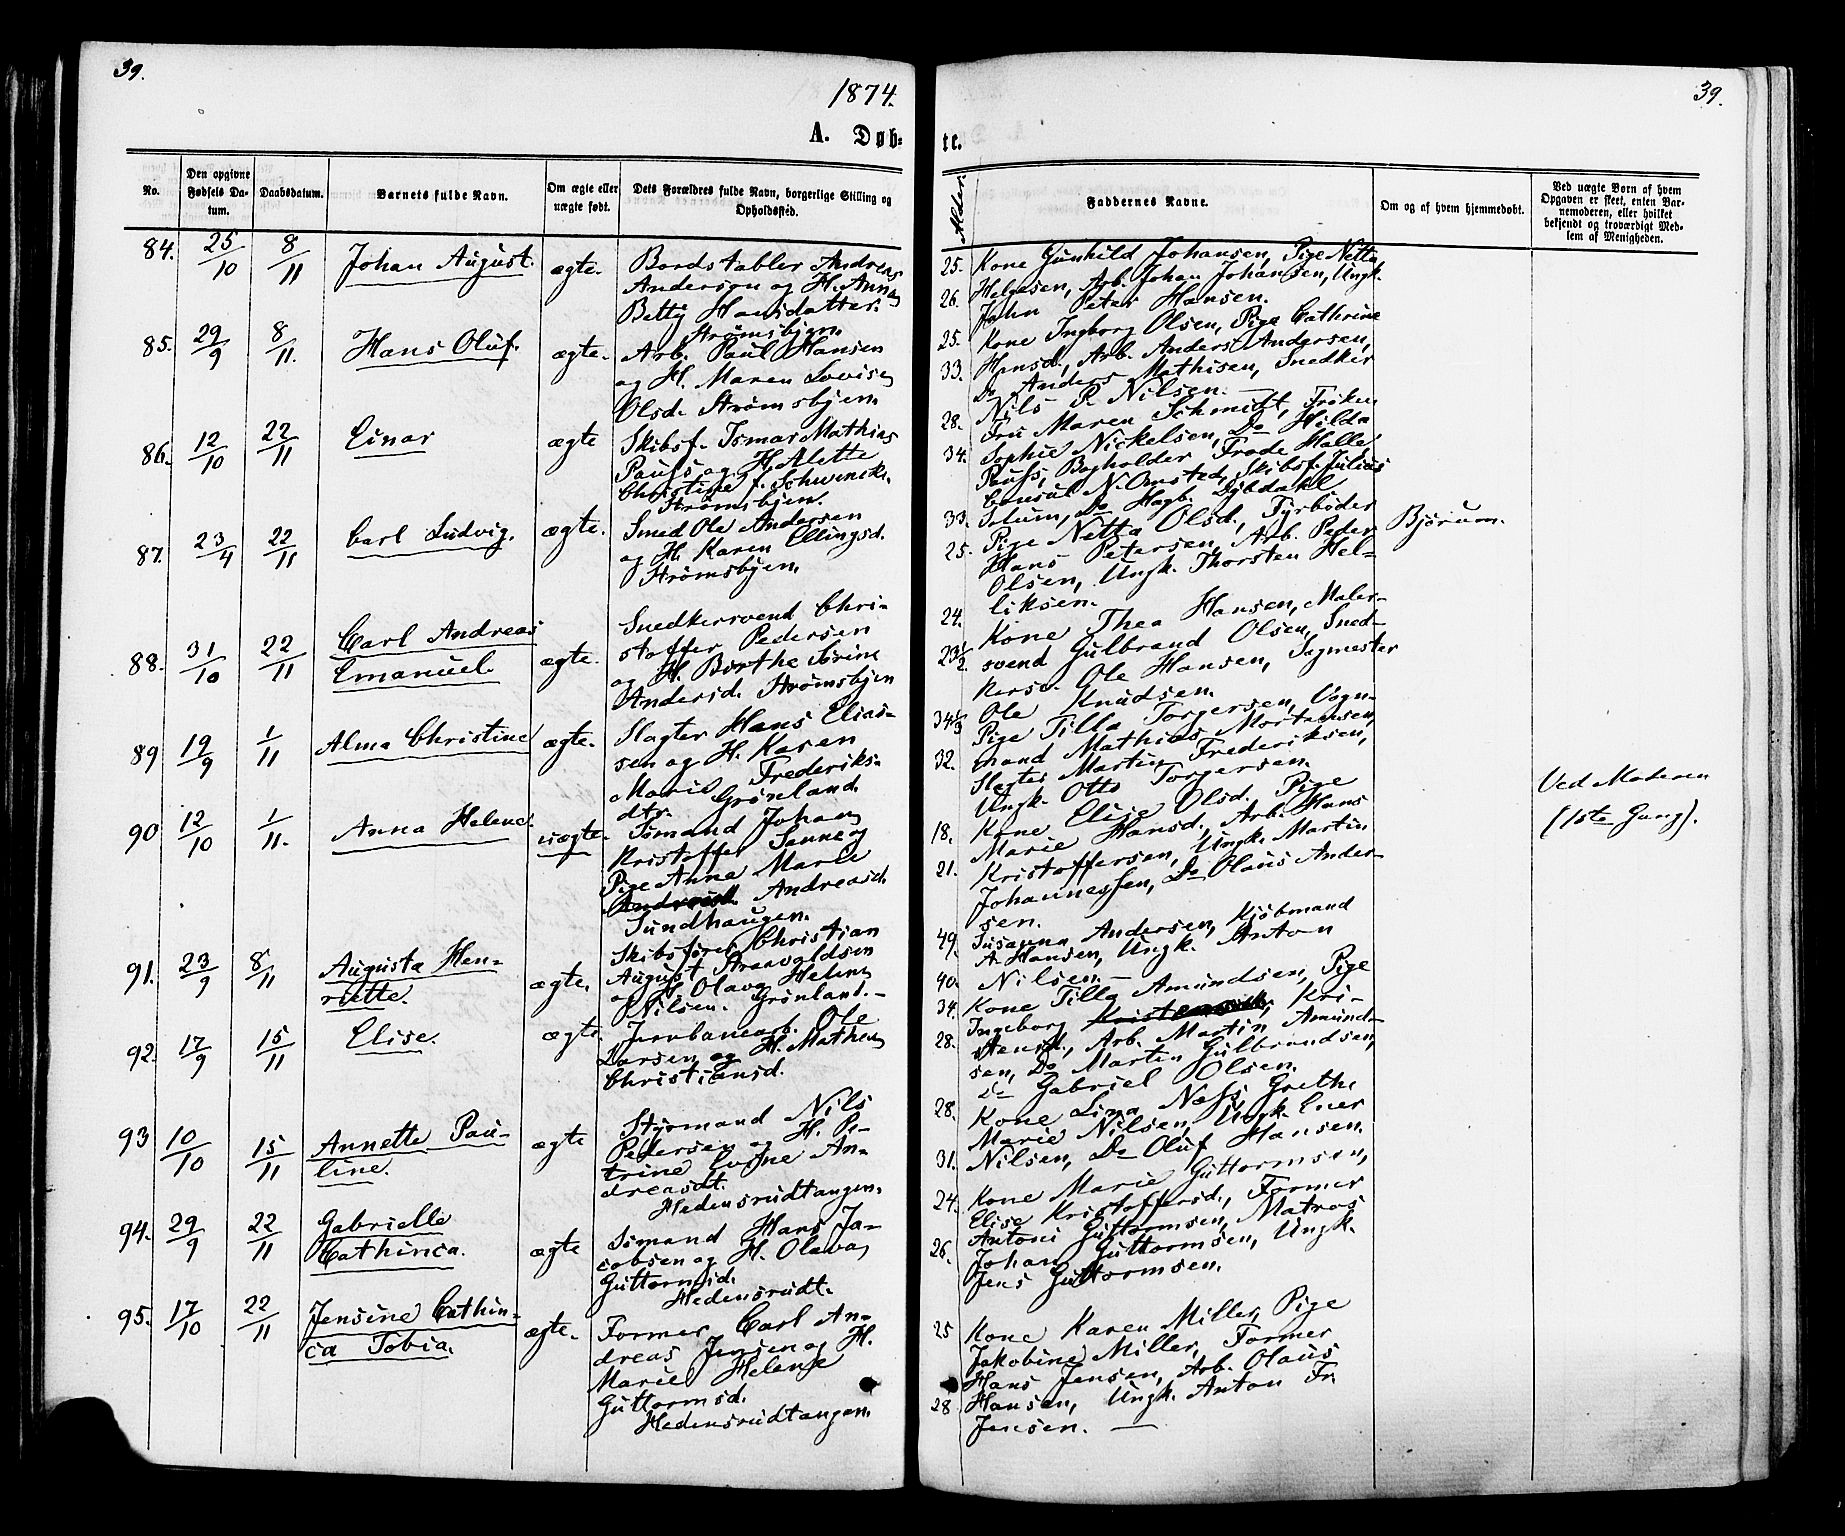 39.
1874.
A. Døb-
No.
Den opgivne Fødsels Da-tum.
Daabsdatum.
Barnets fulde Navn.
Om ægte eller uægte født.
Dets Forældres fulde Navn, borgerlige Stilling og Opholdssted.
84. 25/10 8/11 Johan August. ægte.
Bordstabler Andreas
Anderson og H. Anna
Betty Hansdatter.
Strømsbjen.
85. 29/9 8/11. Hans Oluf. ægte.
Arb. Paul Hansen
og H. Maren Lovise
Olsd. Strømsbjen.
86. 12/10 22/11 Einar ægte
Skibsf. Ismar Mathias
Pauss og H. Alette
Christine f. Schwencke.
Strømsbjen.
87. 23/4 22/11 Carl Ludvig. ægte.
Smed Ole Andersen
og H. Karen Ellingsd.
Strømsbjen.
88. 31/10 22/11 Carl Andreas
Emanuel. ægte.
Snedkersvend Chri-
stoffer Pedersen
og H. Berthe Sørine
Andersd. Strømsbjen
89 19/9 1/11 Alma Christine ægte.
Slagter Hans Elias-
sen og H. Karen
Marie Frederiks-
dtr. Grønland.
90 12/10 1/11. Anna Helene. uægte.
Sømand Johan
Kristoffer Sanne og
Pige Anna Marie
Andreasd.
Sundhaugen.
91. 23/9 8/11 Augusta Hen-
riette. ægte.
Skibsfører Christian
August
og H. Olava Helene
Nilsen. Grønland.-
92. 17/9 15/11 Elise. ægte.
Jernbanearb. Ole
Larsen og H. Mathea
Christiansd.
93 10/10 15/11 Annette Pau-
line. ægte
Styrmand Nils
Pedersen og H. Pe-
trine An-
dreasdt.
Hedensrudtangen.
94. 29/9 22/11 Gabrielle
Cathinca. ægte
Sømand Hans Ja-
cobsen og H. Olava
Guttormsd.
Hedensrudt.
95. 17/10 22/11 Jensine Cathin-
ca Tobia. ægte.
Former Carl An-
dreas Jensen og H.
Marie Helene
Guttormsd.
Hedensrudtangen.
39.
te.
Alder.
Faddernes Navne.
Om og af hvem hjemmedøbt.
Ved uægte Børn af hvem
Opgaven er skeet, enten Bar-
nemoderen, eller hvilket
bekjendt og troværdigt Med-
lem af Menigheden.
25. Kone Gunhild Johansen, Pige Netta
26. Helgesen, Arb. Johan Johansen, Ungk.
John Peter Hansen.
25. Kone Ingborg Olsen, Pige Cathrine
33. Hansd., Arb. Anders Andersen,
Do Anders Mathisen, Snedker
Nils P. Nilsen.
28. Fru Maren Schmidt, Frøken
34. Sophie Nickelsen, Do Hilda
Pauss, Bogholder Frode Halle
Consul N. Omsted, Skibsf. Julius
Solum, Do Hagb. Dybdahl
33. Pige Netta Olsd., Fyrbøder
25. Hans Petersen, Arb. Peder
Olsen, Ungk. Thorsten Hel-
liksen.
Bjørum.
24. Kone Thea Hansen, Maler-
23 1/2. svend Gulbrand Olsen, Sned-
kersv. Ole Hansen, Sagmester
Ole Knudsen.
34 1/3 Pige Tilla Torgersen, Vogn-
32. mand Mathias Mortensen,
Slagter Martin Frederiksen,
Ungk. Otto Torgersen.
18. Kone Elise Olsd. Pige
Marie Hansd., Arb. Hans
21. Kristoffersen, Ungk. Martin
Johannessen, Do Olaus Ander-
sen.
Ved Moderen
(1ste Gang).
49. Susanna Andersen, Kjøbmand
A. Hansen, Ungk. Anton
40. Nilsen.-
34. Kone Tilla Amundsen, Pige
Ingeborg Kri-
28. stensd., Arb. Martin Amund-
sen, Do Martin Gulbrandsen,
Do Gabriel Olsen.
28. Kone Lina Næss, Grethe
Marie Nilsen, Ungk. Ener
31. Nilsen, Do Oluf Hansen.
24. Kone Marie Guttormsen,
Elise Kristoffersd., Former
Antoni Guttormsen, Matros
26. Johan Guttormsen, Ungk.
Jens Guttormsen.
25 Kone Karen Miller, Pige
Jakobine Miller, Former
Hans Jensen, Arb. Olaus
28 Hansen, Ungk. Anton Fr.
Jensen. —